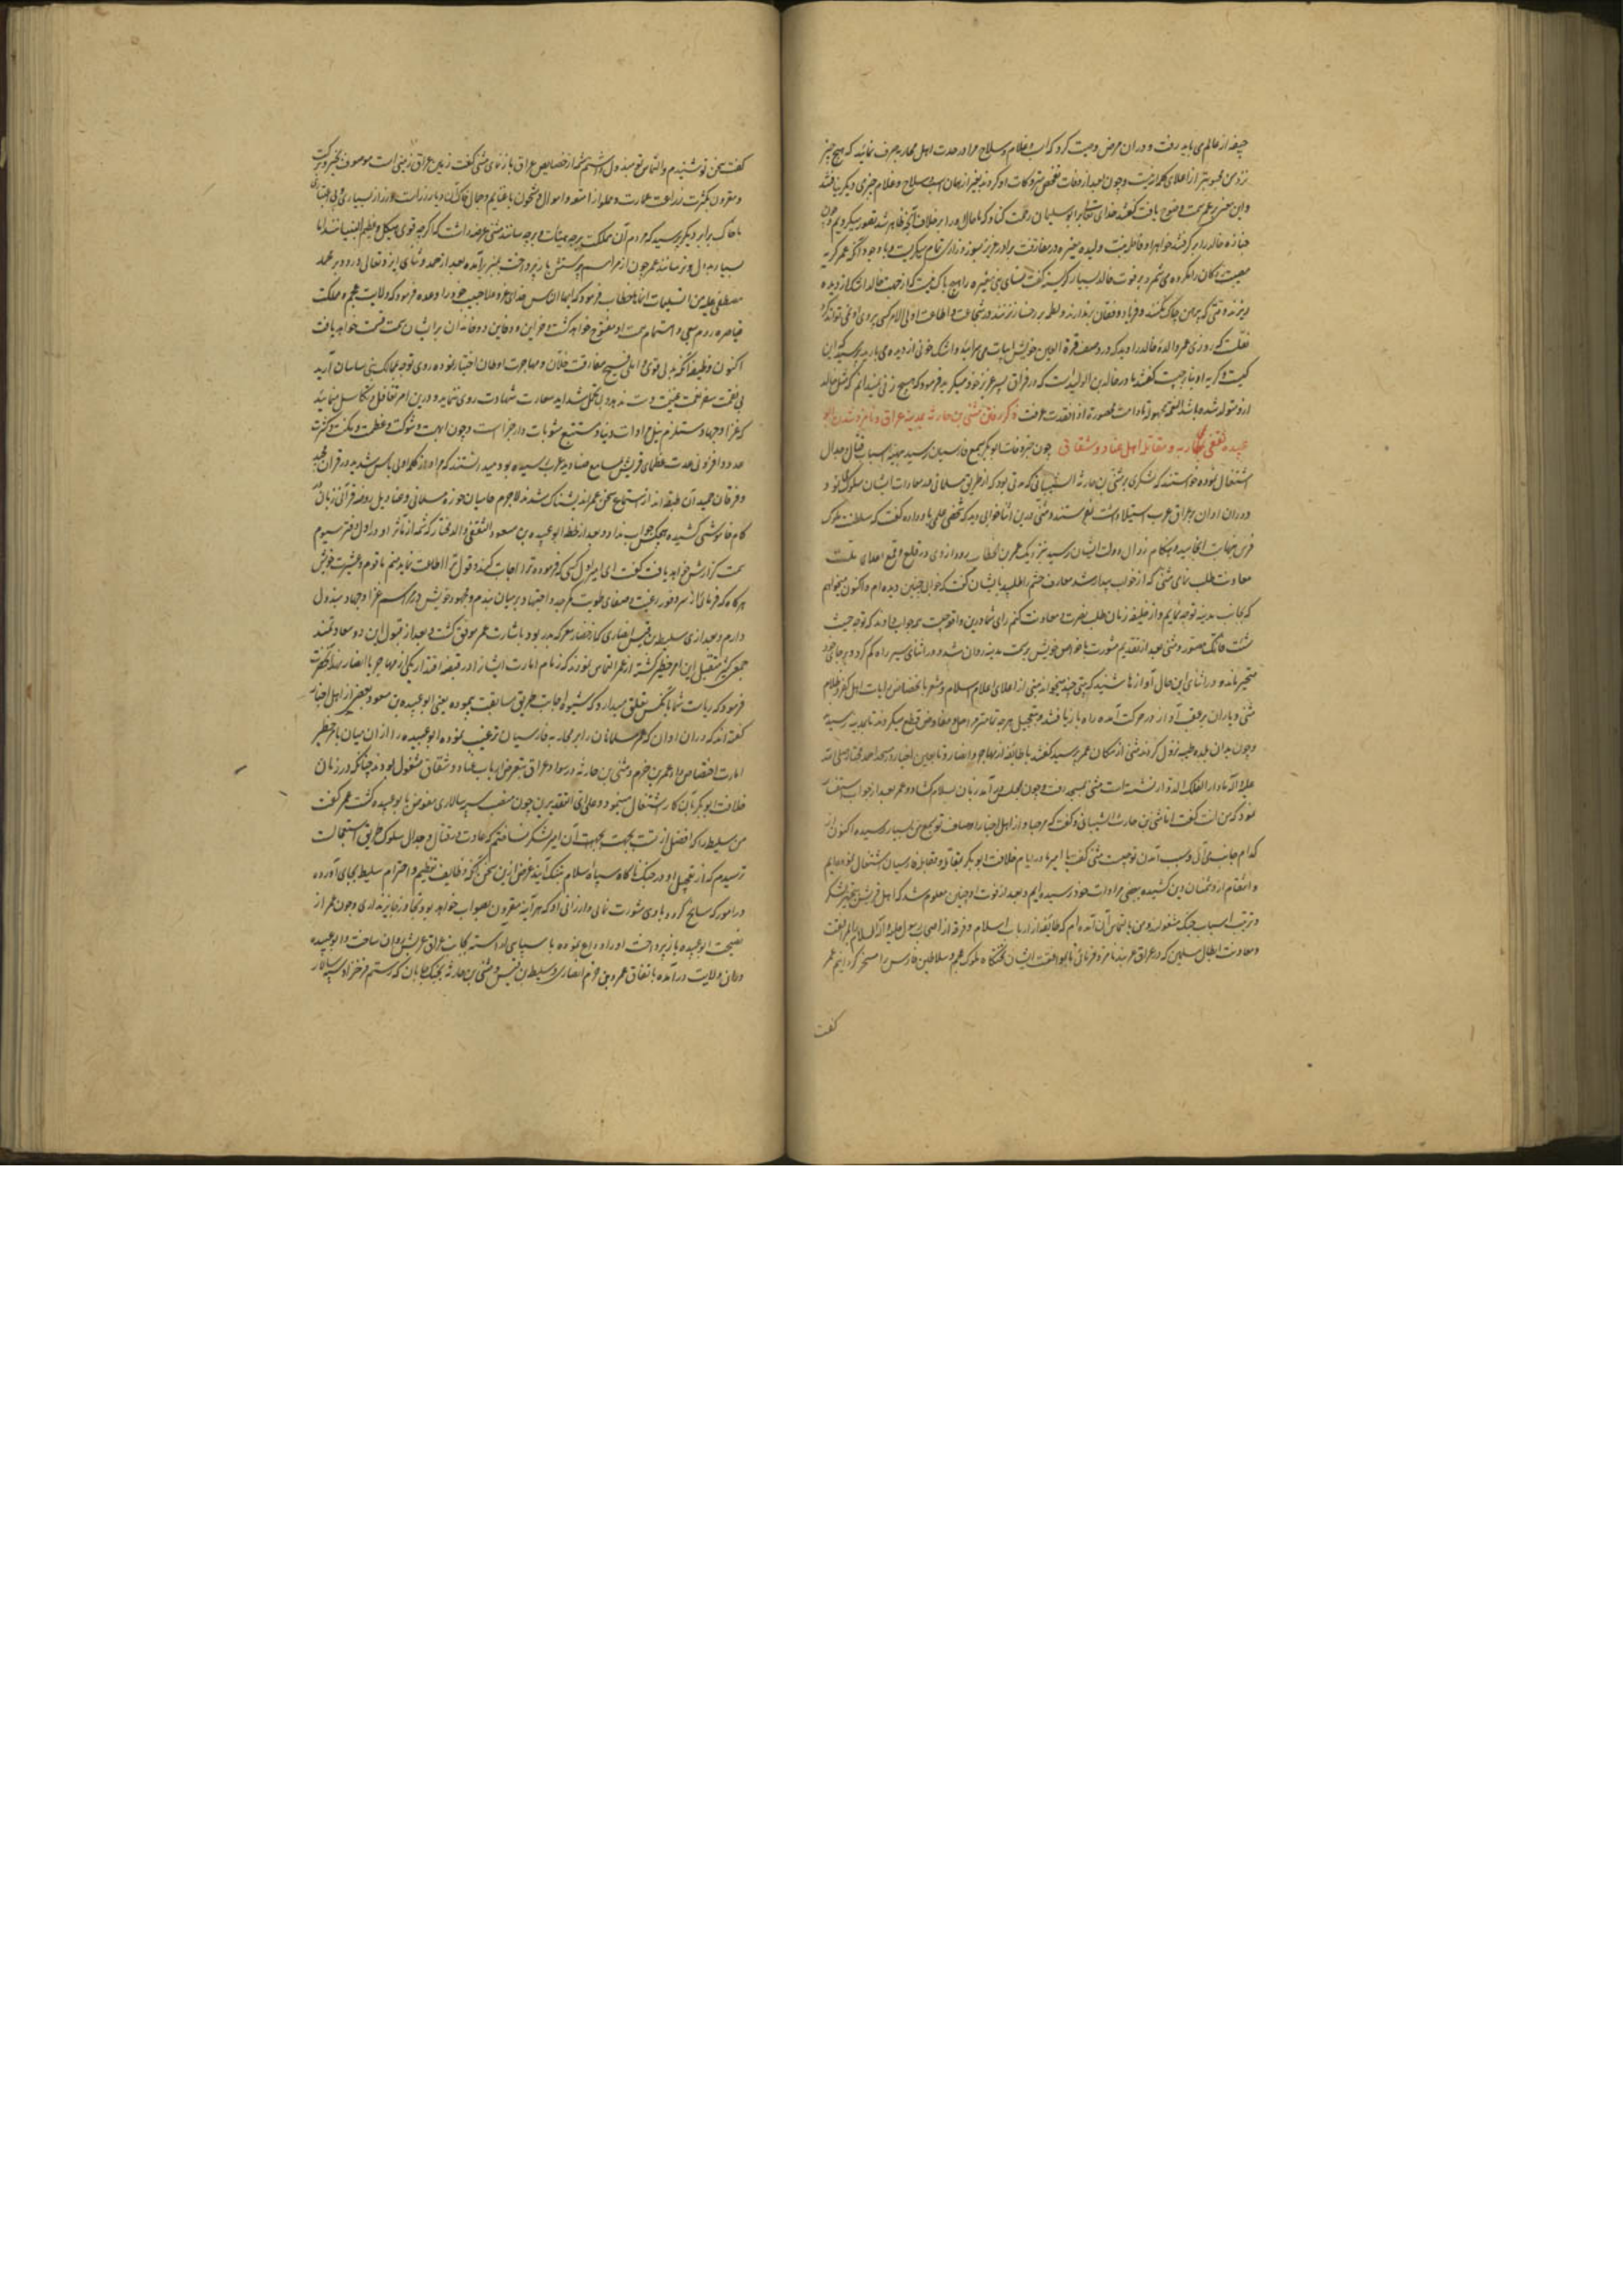 جیفه از عالم می باید رفت و در آن مرض وصیت کرد که اسب و غلام و سلاح مرا در عدت اهل محاربه صرف نمائید که هیچ چیز
نزد من محبوبتر از اعلای کلمه نیست و چون بعد از وفات تفحص متروکات او کردند بغیر از همان اسب و سلاح و غلام چیزی دیگر نیافتند
و این معنی بر عمر سمت وضوح یافت گفت خدای تعالی بر ابو سلیمان رحمت کناد که ما حال او را بر خلاف آنچه ظاهر شد تصور میکردیم و چون
جنازه خالد را بر گرفتند خواهر او فاطمه بنت ولید بن مغیره در مفارقت برادر عزیز بسوز و زاری تمام میگریست و با وجود آنکه عمر گریه
مصیبت زدگان را مکروه می شمرد بر فوت خالد بسیار گریسته گفت نسای بنی مغیره را هیچ باک نیست که از جهت خالد اشک از دیده
ریزند وقتی که پیرهن چاک نکنند و فریاد و فغان بر ندارند و لطمه بر رخسار نزنند و در شجاعت و اطاعت اولی الامر کسی پیروی او نمی تواند کرد
نقلست که روزی عمر والده خالد را دید که در وصف قرة العین خویش ابیات می سراید و اشک خونی از دیده می بارید پرسید که این
کیست و گریه او بنا بر چیست گفتند مادر خالد بن الولید است که در فراق پسر عزیز خود میگرید فرمود که هیچ زنی نمیدانم که مثل خالد
ازو متولد شده باشد ذکر رفتن مثنی بن حارثه بمدینه از عراق و نامزد شدن ابو
عبیده ثقفی بمحاربه و مقاتله اهل عناد و شقاق چون خبر وفات ابو بکر بسمع فارسیان رسید مهیّای اسباب قتال و جدال
اشتغال نموده خواستند که لشکری بر مثنی بن حارثه الشیبانی که مدتی بود که از طریق مسلمانی معادات ایشان سلوک نمود و
در آن اوان بر عراق عرب استیلا داشت بفرستند و مثنی در این اثنا خوابی دید که شخصی علمی باو داده گفت که سلطنت ملوک
فرس بنهایت انجامیده و هنگام زوال دولت ایشان رسید نزدیک عمر بن الخطاب رو و از وی در قلع و قمع اعدای ملت
معاونت طلب نمای مثنی که از خواب بیدار شد معارف حشم را طلبید با ایشان گفت که خوابی چنین دیده ام و اکنون میخواهم
که بجانب مدینه توجه نمایم و از خلیفه زمان طلب نصرت و معاونت کنم رای شما درین واقعه چیست همه جواب دادند که توجه حیث
شئت فانک منصور و مثنی بعد از تقدیم مشورت با خواص خویش بر سمت مدینه روان شد و در اثنای سیر راه گم کرد و بر جای خود
متحیر مانده در اثنای این حال آوازها شنید که بیتی چند میخوانند مبنی از اعلای اعلام اسلام و مشعر بانخفاض رایات اهل کفر و ظلام
مثنی و یاران بر عقب آواز در حرکت آمده راه باز یافتند و بتعجیل هر چه تمامتر مراحل و مفاوض قطع میکردند تا بمدینه رسیدند
و چون بدان بلده طیبه نزول کردند مثنی از مکان عمر پرسید گفتند با طایفه از مهاجر و انصار و تابعین اخیار در مسجد احمد مختار صلی الله
علیه و آله ما دار الفلک الدوار نشسته است مثنی بمسجد رفت و چون بمجلس در آمد زبان بسلام گشاد و عمر بعد از جواب استفسار
نمود که من انت گفت انا مثنی بن حارثه الشیبانی و گفت که مرحبا و از اهل اخبار اوصاف تو بسمع من بسیار رسیده اکنون از
کدام جانب می آئی و سبب آمدن تو چیست مثنی گفت یا امیر ما در ایام خلافت ابو بکر بمقاتله و مقابله فارسیان اشتغال نموده ایم
و انتقام از دشمنان دین کشیده ببعضی مرادات خود رسیده ایم و بعد از فوت او چنین معلوم شد که اهل فرس بتجهیز لشکر
و ترتیب اسباب جنگ مشغولند و من بالتماس آن آمده ام که طایفه از ارباب اسلام و فرقه از اصحاب رسول علیه و آله السلام بمرافقت
و معاونت ابطال مسلمین که در عراق عربند نامزد فرمائی تا بموافقت ایشان تختگاه ملوک عجم و سلاطین فارس را مسخر گردانیم عمر
گفت
گفت سخن تو شنیدم و التماس ترا مبذول داشتم شمه از خصایص عراق باز نمای مثنی گفت زمین عراق زمینی است موصوف بخیر و برکت
و مقرون بکثرت زراعت و عمارت و مملو از امتعه و اموال و مشحون باغنایم و جمال خاک آن دیار زر است و زر از بسیاری بی اعتباری
با خاک برابر دیگر پرسید که مردم آن مملکت بر چه هیئات و بر چه سانند مثنی عرضه داشت که اگر چه قوی هیکل و عظیم البنیانند اما
بسیار بد دل و ترسانند عمر چون از مراسم پرسش باز پرداخت بمنبر بر آمده بعد از حمد و ثنای ایزد تعالی و درود بر محمد
مصطفی علیه من التسلیمات انماها خطاب فرمود که ایها الناس خدای عز و علا حبیب خود را وعده فرمود که ولایت عجم و مملکت
قیاصره روم بسعی و اهتمام امت او مفتوح خواهد گشت و خزاین و دفاین دو خاندان بر ایشان سمت قسمت خواهد یافت
اکنون وظیفه آنکه بدلی قوی و املی فسیح مفارقت خلان و مهاجرت اوطان اختیار نموده روی توجه بممالک بنی ساسان آرید
بی مشقت سفر نعمت غنیمت دست ندهد و بی تحمل شداید سعادت شهادت روی ننماید و درین امر تغافل و تکاسل ننمائید
که غزا و جهاد مستلزم نیل مرادات دنیا و مستتبع مثوبات دار جزا است و چون ابهت و شوکت و عظمت و مکنت و کثرت
عدد و افزونی عدت عظمای فرس بمسامع صنادید عرب رسیده بود میدانستند که مراد از کلمه اولی باس شدید در قرآن مجید
و فرقان حمید آن طبقه اند از استماع سخن عمر اندیشناک شدند لاجرم حامیان حوزه مسلمانی و عنادیل روضه قرآنی زبان در
کام خاموشی کشیده هیچکس جواب نداد و بعد از لحظه ابو عبیده بن مسعود الثقفی والد مختار که شمه از مآثر او در اول دفتر سیوم
سمت گزارش خواهد یافت گفت ای امیر اول کسی که فرموده ترا اجابت کند و قول ترا اطاعت نماید منم با قوم و عشیرت خویش
هرگاه که فرمائی از سر وفور رغبت و صفای طویت کمر جد و اجتهاد بر میان بندم و مجهود خویش در مراسم غزا و جهاد مبذول
دارم و بعد از وی سلیط بن قیس انصاری که از حضار معرکه بدر بود باشارت عمر موفق گشت و بعد از قبول این دو سعادتمند
جمعی کثیر متقبل این امر خطیر گشته از عمر التماس نمودند که زمام امارت ایشانرا در قبضه اقتدار یکی از مهاجر یا انصار نهد آنحضرت
فرمود که ریاست شما بآنکس تعلق میدارد که بشیوه اجابت طریق مسابقت پیموده یعنی ابو عبیده بن مسعود بعضی از اهل اخبار
گفته اند که در آن اوان که عمر مسلمانان را بر محاربه فارسیان ترغیب نموده ابو عبیده را از آن میان بامر خطیر
امارت اختصاص داد عمرو بن حزم و مثنی بن حارثه در سواد عراق بتعرض ارباب عناد و شقاق مشغول بودند چنانکه در زمان
خلافت ابو بکر بآن کار اشتغال مینمود و علی ای التقدیرین چون منصب سپهسالاری مفوض بابو عبیده گشت عمر گفت
من سلیط را که افضل از تست بجهت آن امیر لشکر نساختم که عادت در قتال و جدال سلوک طریق استعجالست
ترسیدم که از تعجیل او در جنگ ناگاه سپاه اسلام بتنگ آیند غرض ازین سخن آنکه وظایف تعظیم و احترام سلیط بجای آورده
در امور که سانح گردد با وی مشورت نمای و از رای او که هر آینه مقرون بصواب خواهد بود تجاوز جایز نداری و چون عمر از
نصیحت ابو عبیده باز پرداخت او را وداع نموده با سپاهی آراسته بجانب عراق عرب روان ساخت و ابو عبیده
در آن ولایت در آمده باتفاق عمرو بن حزم انصاری و سلیط بن قیس و مثنی بن حارثه بجنگ جابان که رستم فرخزاد سپهسالار